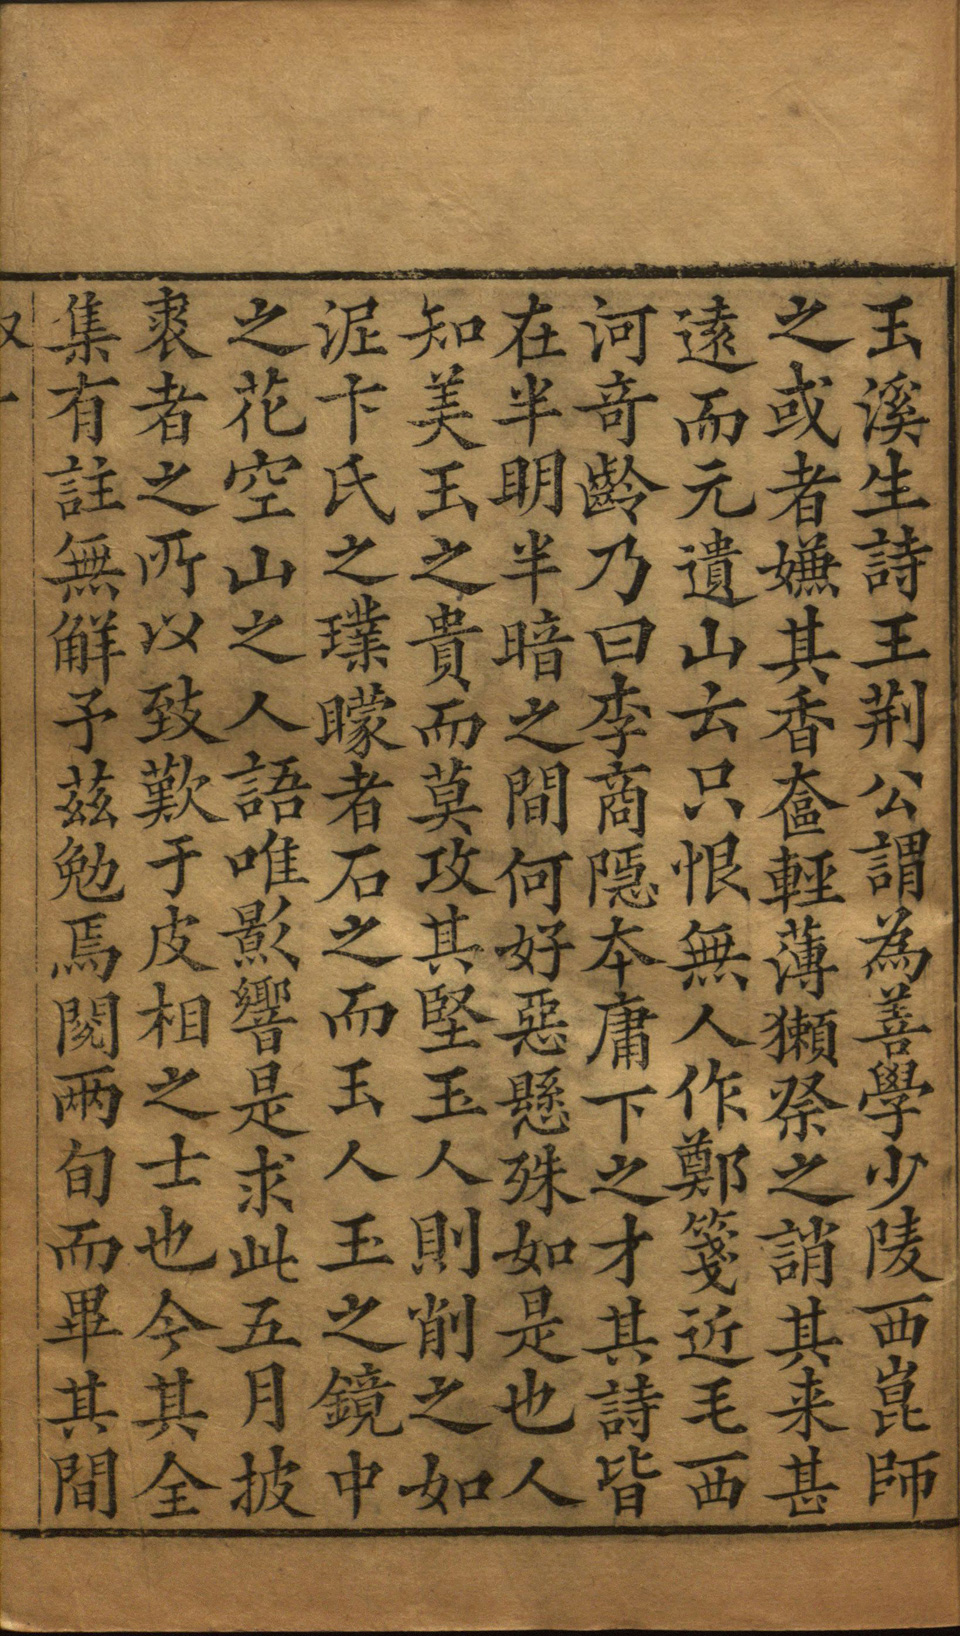 玉溪生詩王荆公謂為善學少陵西崑師
之或者嫌其香奩輕薄獺祭之誚其来甚
遠而元遺山云只恨無人作鄭箋近毛西
河竒齡乃曰李商隱本庸下之才其詩皆
在半明半暗之間何好惡懸殊如是也人
知美玉之貴而莫攻其堅玉人則削之如
泥卞氏之璞矇者石之而玉人玉之鏡中
之花空山之人語唯影響是求此五月披
裘者之所以致歎于皮相之士也今其全
集有註無觧予茲勉焉閱兩旬而畢其間